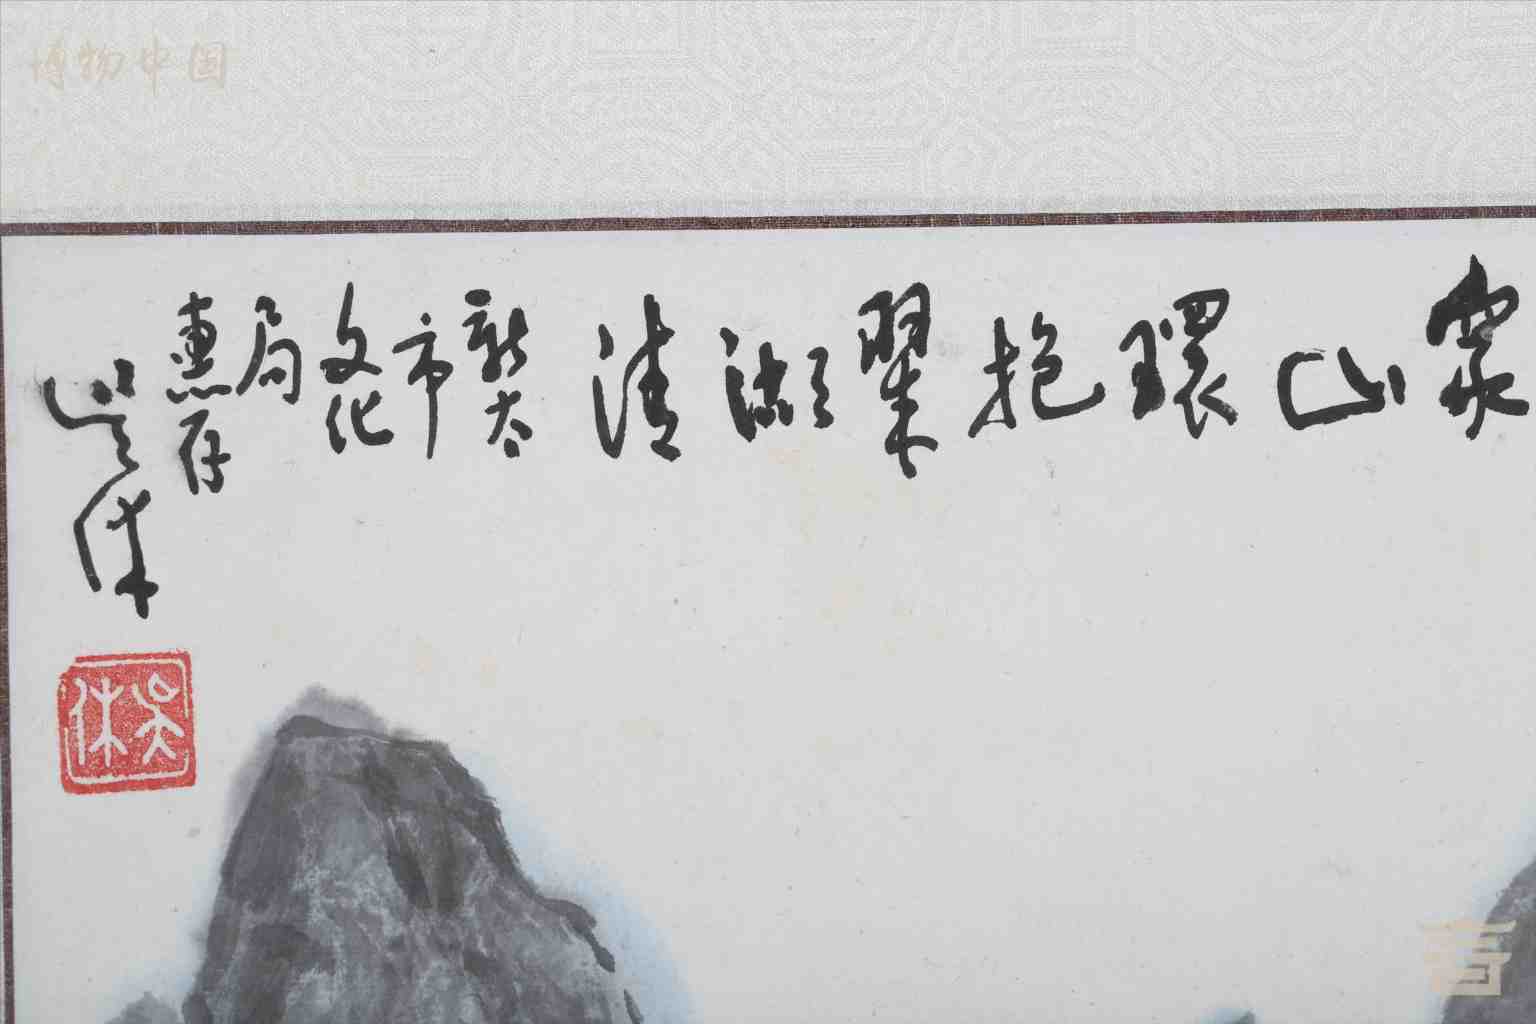 博物中国
众山環抱翠湖清
新太
市
文化
局
惠存
吴休
吴休